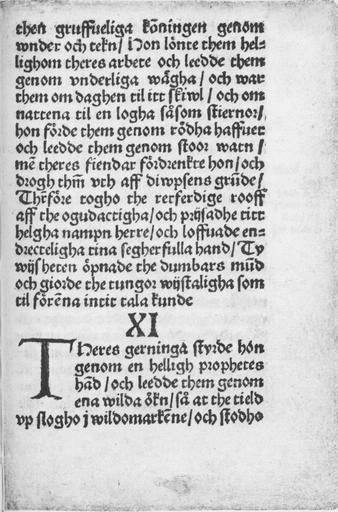 then gruffueliga kōningen genōm
wnder och tekn/ Hon lōnte them hel-
lighom theres arbete och leedde them
genom vnderliga wägha/ och war
them om daghen til itt skiwl/ och om
nattena til en logha såsom stiernor/
hon förde them genom rödha haffuet
och leedde them genom stoor watn/
mē theres fiendar fördrenkte hon/och
drogh thm̄ vth aff diwpsens grūde/
Thrföre togho the retferdige rooff
aff the ogudactigha/och prijsadhe titt
helgha nampn herre/och loffuade en-
drecteligha tina segherfulla hand/Ty
wijsheten öpnade the dumbars mūd
och giorde the tungor wijstaligha som
til förēna intit tala kunde
XI
THeres gerningā styrde hon
genom en helligh prophetes
hād/och leedde them genom
ena wilda ökn/så at the tield
vp slogho j wildomarkēne/och stodho